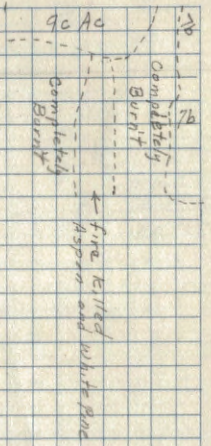 9c Ac
7b
7b
Completely
Burn't
Completely
Burn't
← fire killed
Aspen and white pine